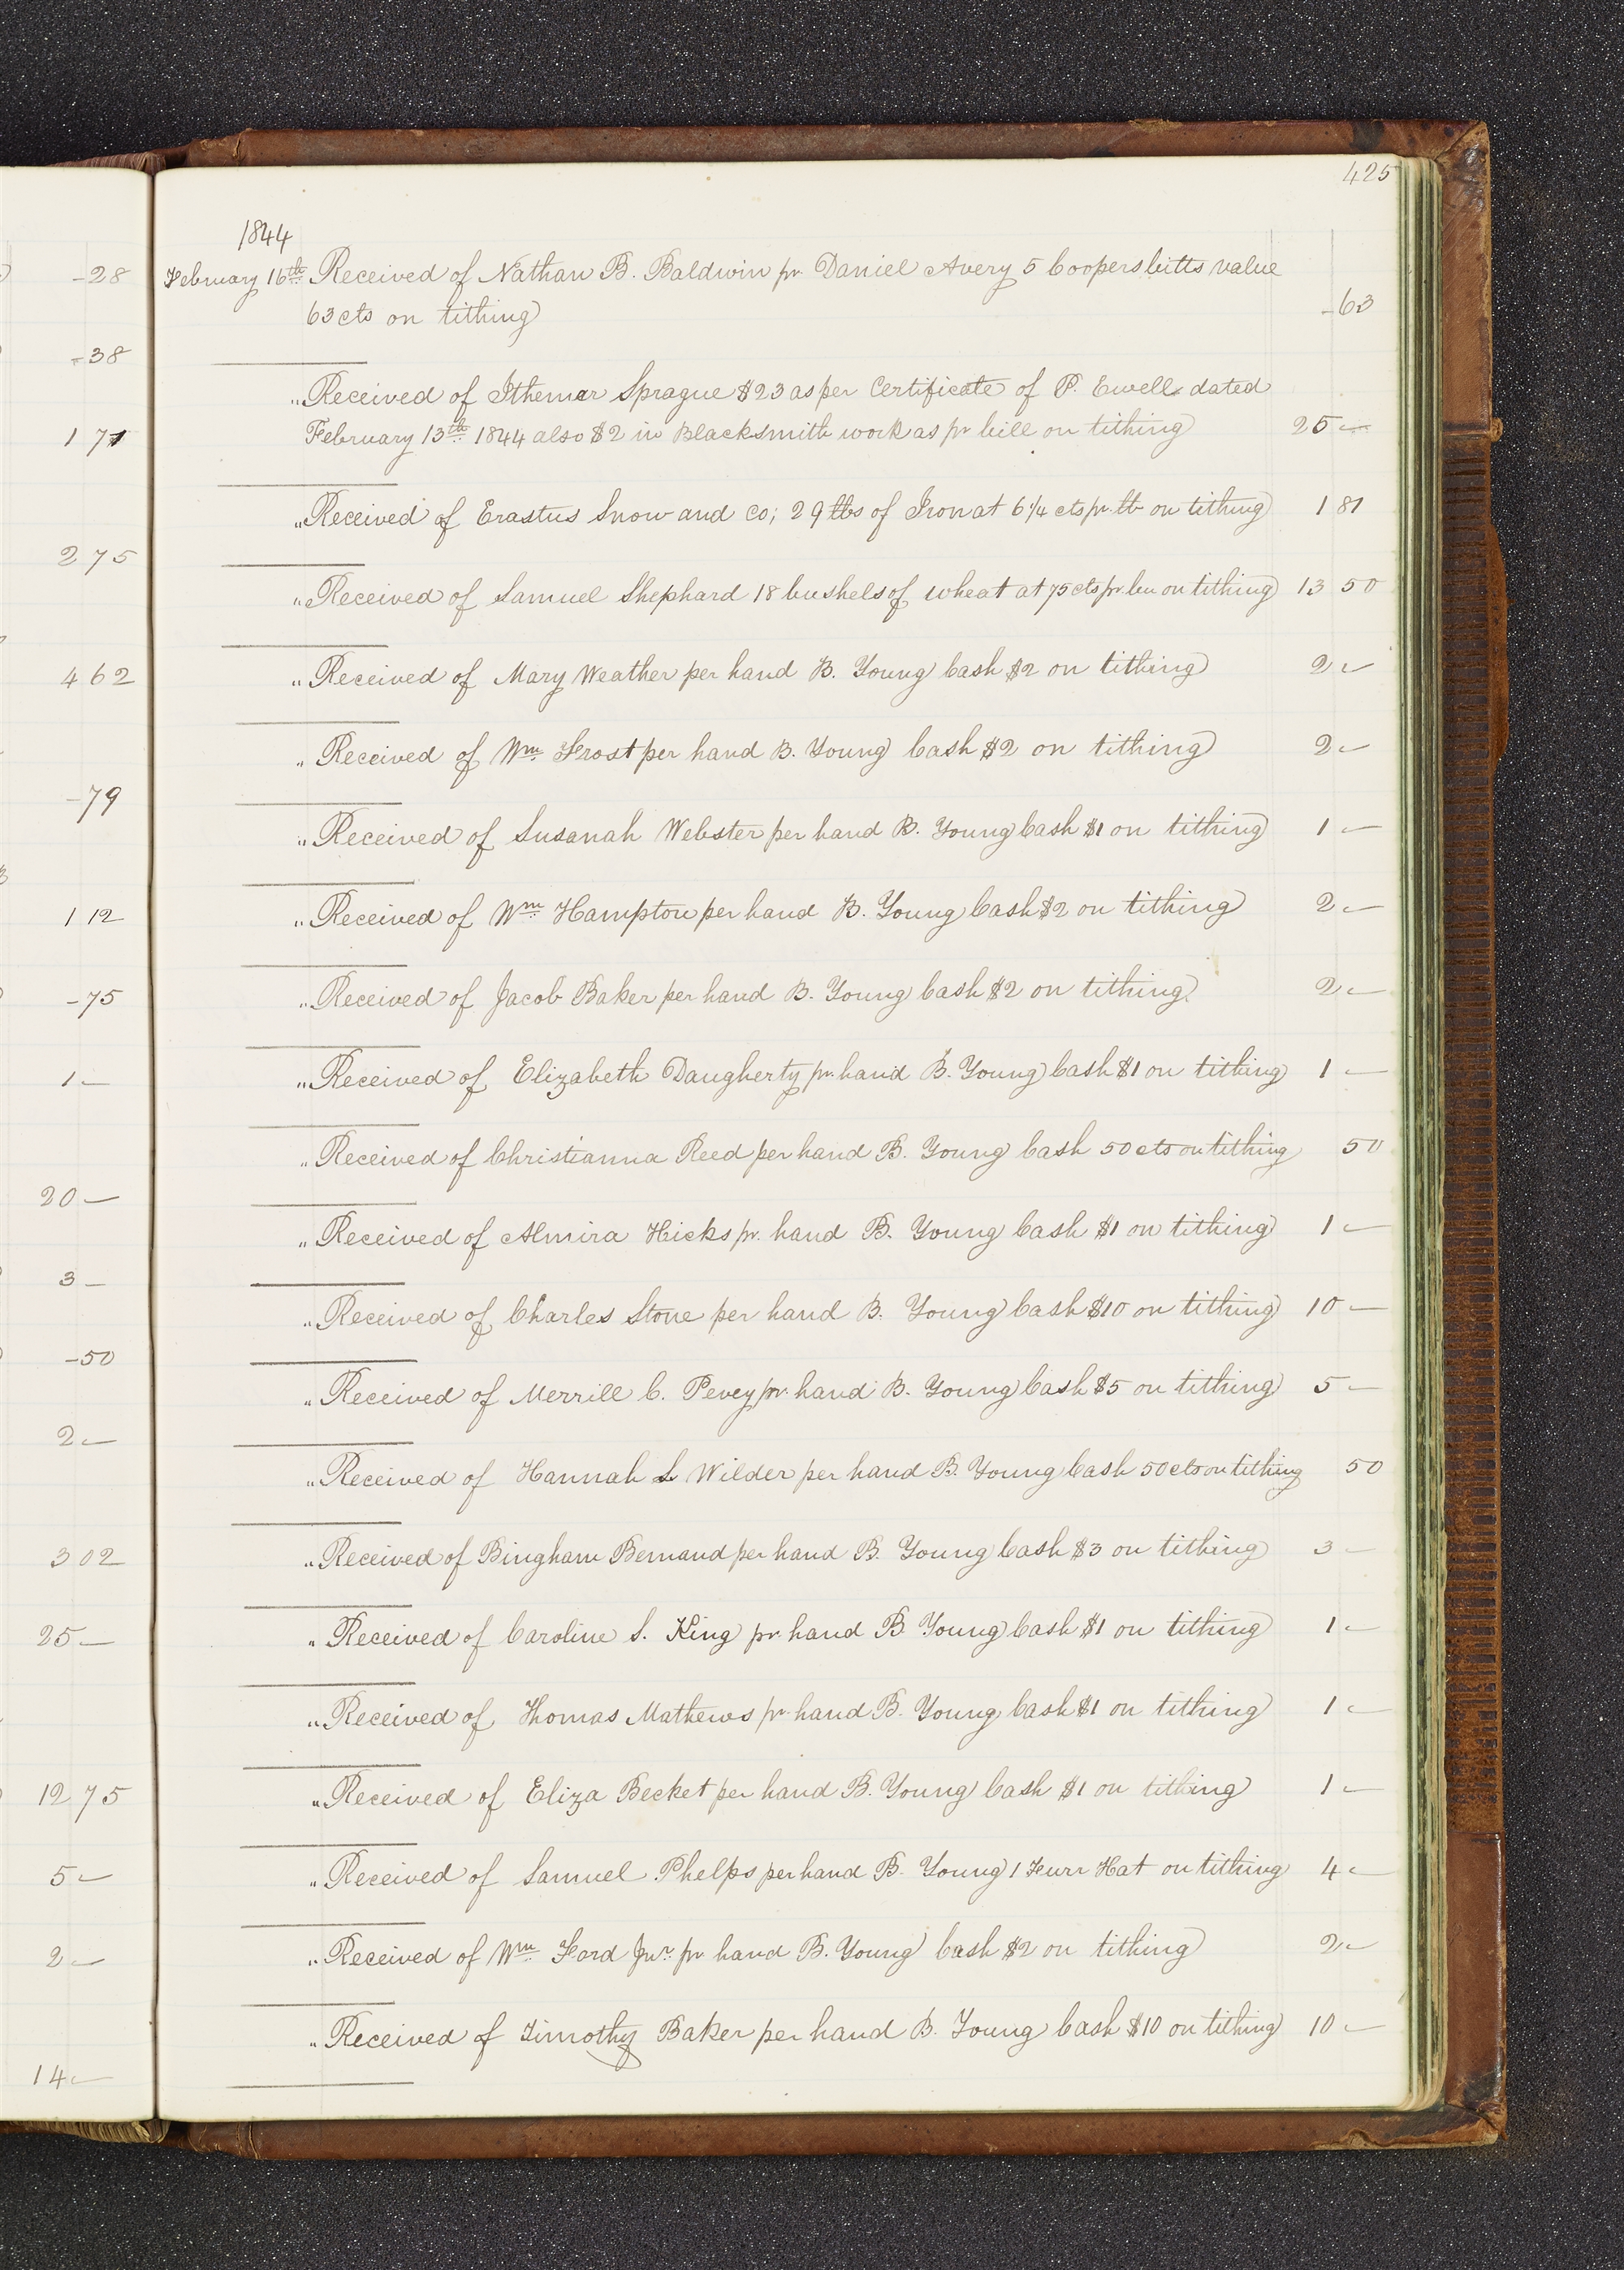 425
1844
-28
February 16th Received of Nathan B. Baldwin pr. Daniel Avery 5 Coopers bitts value
63 cts on tithing -63
-38
" Received of Ithemar Sprague $23 as per Certificate of P. Ewell dated
1 71
February 13th 1844 also $2 in Blacksmith work as pr bill on tithing 25 —
" Received of Erastus Snow and Co; 29 lbs of Iron at 6 1/4 cts pr. lb on tithing 1 81
2 75
" Received of Samuel Shephard 18 bushels of wheat at 75 cts pr. bu on tithing 13 50
4 62
" Received of Mary Weather per hand B. Young Cash $2 on tithing 2 —
" Received of Wm Frost per hand B. Young Cash $2 on tithing 2 —
-79
" Received of Susanah Webster per hand B. Young Cash $1 on tithing 1 —
1 12
" Received of Wm Hampton per hand B. Young Cash $2 on tithing 2 —
-75
" Received of Jacob Baker per hand B. Young Cash $2 on tithing 2 —
1 —
" Received of Elizabeth Daugherty pr. hand B. Young Cash $1 on tithing 1 —
" Received of Christianna Reed per hand B. Young Cash 50 cts on tithing 50
20 —
" Received of Almira Hicks pr. hand B. Young Cash $1 on tithing 1 —
3 —
" Received of Charles Stone per hand B. Young Cash $10 on tithing 10 —
-50
" Received of Merrill C. Pevey pr. hand B. Young Cash $5 on tithing 5 —
2 —
" Received of Hannah L Wilder per hand B. Young Cash 50 cts on tithing 50
3 02
" Received of Bingham Bemand per hand B. Young Cash $3 on tithing 3 —
25 —
" Received of Caroline S. King pr. hand B. Young Cash $1 on tithing 1 —
" Received of Thomas Mathews pr. hand B. Young Cash $1 on tithing 1 —
12 75
" Received of Eliza Becket per hand B. Young Cash $1 on tithing 1 —
5 —
" Received of Samuel Phelps per hand B. Young 1 Furr Hat on tithing 4 —
2 —
" Received of Wm Ford Jnr. pr hand B. Young Cash $2 on tithing 2 —
" Received of Timothy Baker per hand B. Young Cash $10 on tithing 10 —
14 —